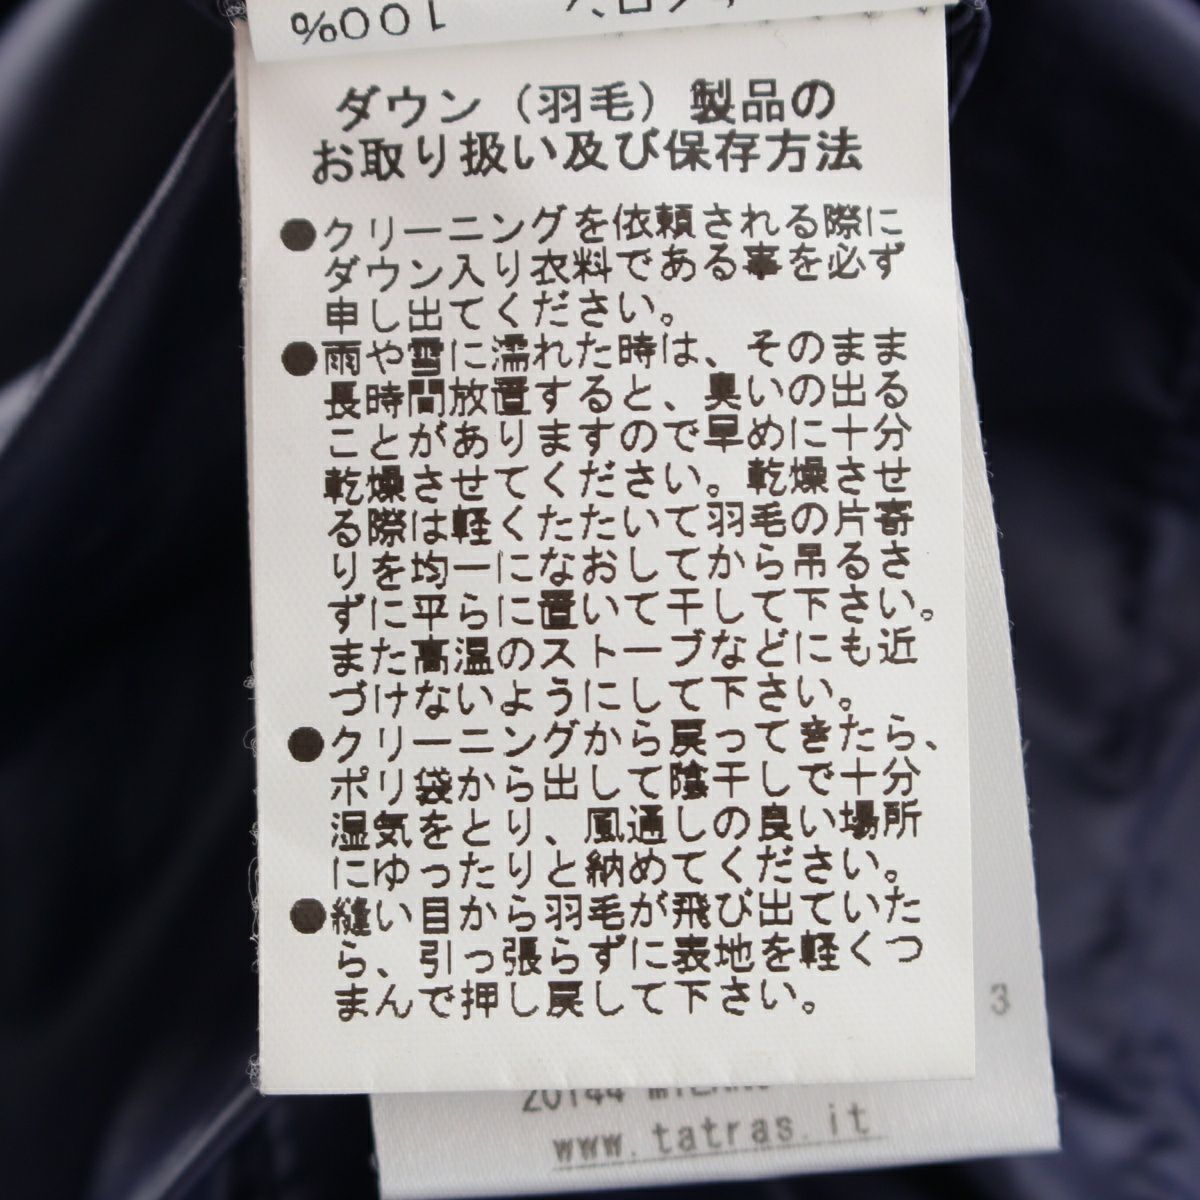 100%
ダウン（羽毛）製品の
お取り扱い及び保存方法
●クリーニングを依頼される際に
ダウン入り衣料である事を必ず
申し出てください。
●雨や雪に濡れた時は、そのまま
長時間放置すると、臭いの出る
ことがありますので早めに十分
乾燥させてください。乾燥させ
る際は軽くたたいて羽毛の片寄
りを均一になおしてから吊るさ
ずに平らに置いて干して下さい。
また高温のストーブなどにも近
づけないようにして下さい。
●クリーニングから戻ってきたら、
ポリ袋から出して陰干しで十分
湿気をとり、風通しの良い場所
にゆったりと納めてください。
●縫い目から羽毛が飛び出ていた
ら、引っ張らずに表地を軽くつ
まんで押し戻して下さい。
3
20144
www.tatras.it